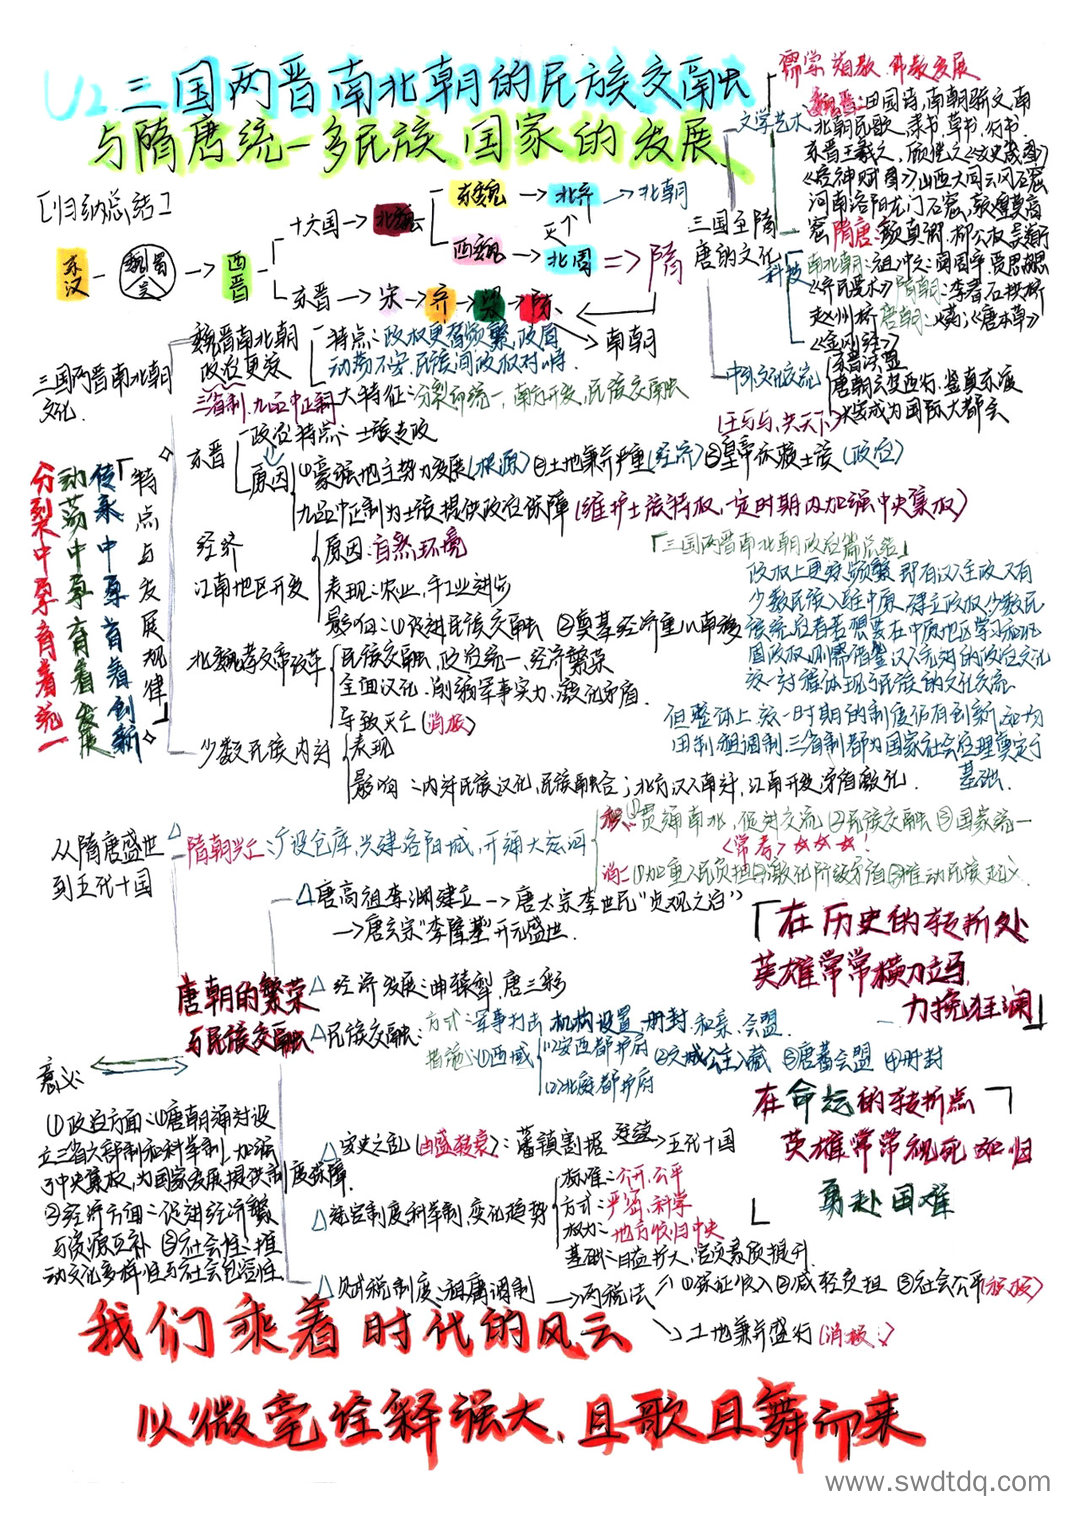 U2.三国两晋南北朝的民族交融
与隋唐统一多民族国家的发展
[归纳总结]
东汉
魏 蜀 吴
西晋
十六国
北魏
东魏
北齐
北朝
灭
西魏
北周
隋
东晋
宋
齐
梁
陈
南朝
三国至隋
唐的文化
文学艺术
儒学 道教 佛教发展
魏晋:田园诗,南朝骈文,南
北朝民歌,隶书,草书,行书
东晋王羲之,顾恺之《女史箴图》
《洛神赋图》,山西大同云冈石窟
河南洛阳龙门石窟,敦煌莫高
窟 隋唐:颜真卿,柳公权,吴道子
科技
南北朝:祖冲之:圆周率,贾思勰
《齐民要术》隋朝:李春石拱桥
赵州桥 唐朝:火药;《唐本草》
《金刚经》
中外文化交流
唐朝玄奘西行,鉴真东渡
长安成为国际大都会
三国两晋南北朝
文化
魏晋南北朝
政权更迭
特点:政权更替频繁,政局
动荡不安,民族间政权对峙
三省制,九品中正制
大特征:分裂而统一,南方开发,民族交融
(王与马,共天下)
东晋
政治特点:士族专政
原因
①豪强地主势力发展(根源)②土地兼并严重(经济)③皇帝依赖士族(政治)
九品中正制为士族提供政治保障(维护士族特权,一定时期内加强中央集权)
经济
江南地区开发
原因:自然环境
表现:农业,手工业进步
影响:①促进民族交融 ②奠基经济重心南移
北魏孝文帝改革
民族交融,政治统一,经济繁荣
全面汉化,削弱军事实力,激化矛盾
导致灭亡(消极)
少数民族内迁
表现
影响:内迁民族汉化,民族融合;北方汉人南迁,江南开发,矛盾激化
「三国两晋南北朝政治篇总结」
政权上更迭频繁,即有汉人主政,又有
少数民族入驻中原,建立政权,少数民
但整体上,这一时期的制度仍有创新,如均
田制,租调制,三省制都为国家社会治理奠定了
基础.
「特点与发展规律」
传承中孕育着创新
动荡中孕育着发展
分裂中孕育着统一
从隋唐盛世
到五代十国
隋朝兴亡:广设仓库,兴建洛阳城,开通大运河
积:①贯通南北,促进交流 ②民族交融 ③国家统一
<常考>☆☆☆!
消:①加重人民负担②激化阶级矛盾③推动民族起义
唐高祖李渊建立→唐太宗李世民"贞观之治"
→唐玄宗"李隆基"开元盛世.
唐朝的繁荣
与民族交融
经济发展:曲辕犁,唐三彩
民族交融:
方式:军事打击,机构设置,册封,和亲,会盟
措施:①西域
(1)安西都护府
(2)北庭都护府
②文成公主入藏 ③唐蕃会盟 ④册封
安史之乱(由盛转衰):藩镇割据 延续→五代十国
选官制度科举制,变化趋势
标准:公开,公平
方式:严密,科学
权力:地方收归中央
基础:日益扩大,官员素质提升
赋税制度:租庸调制→两税法
①保证收入②减轻负担 ③社会公平(积极)
土地兼并盛行(消极)
意义:
①政治方面:①唐朝通过设
立三省六部制和科举制,加强
了中央集权,为国家发展提供制度保障.
②经济方面:促进经济繁荣
与资源互补 ③社会性:推
动文化多样性与社会包容性.
「在历史的转折处
英雄常常横刀立马,
力挽狂澜」
在命运的转折点
英雄常常视死如归
勇赴国难
我们乘着时代的风云
以微毫诠释强大,且歌且舞而来
www.swdtdq.com